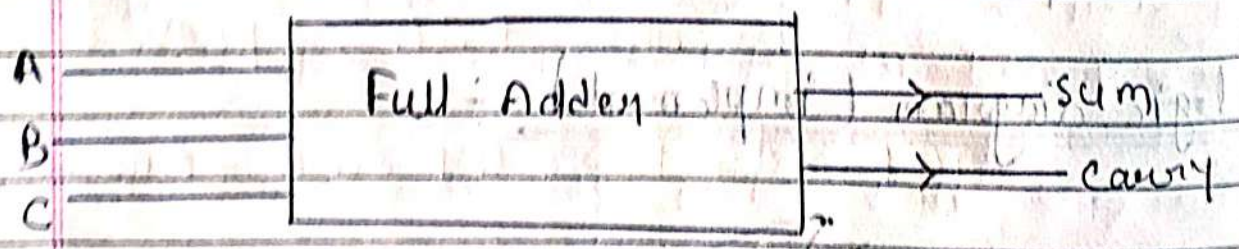 A
Full Adder
Sum
B
Carry
C